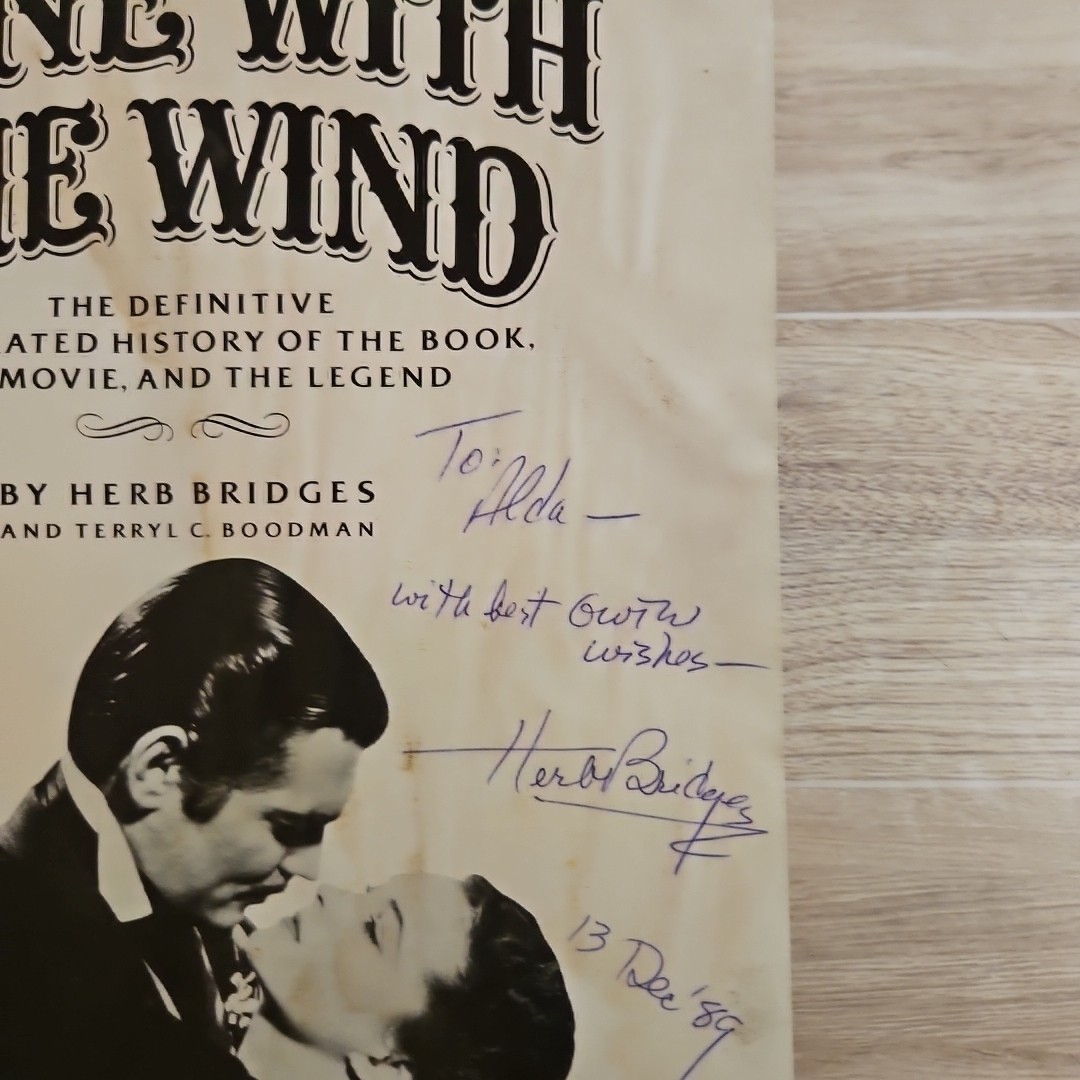 NE WITH
HE WIND
THE DEFINITIVE
ATED HISTORY OF THE BOOK,
MOVIE, AND THE LEGEND
BY HERB BRIDGES
AND TERRYL C. BOODMAN
To:
Alda —
with best GWTW
wishes —
Herb Bridges
13 Dec '89